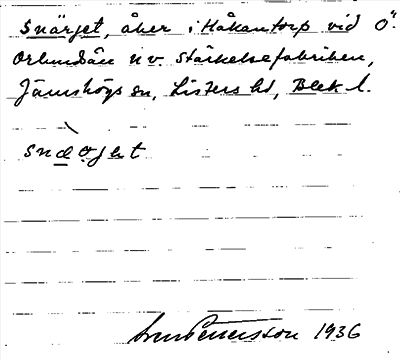 Snärjet, åker i Håkantorp vid Ö.
Orlundsån n v. Stärkelsefabriken,
Jämshögs sn, Listers hd, Blek l.
sndojet
Pettersson 1936